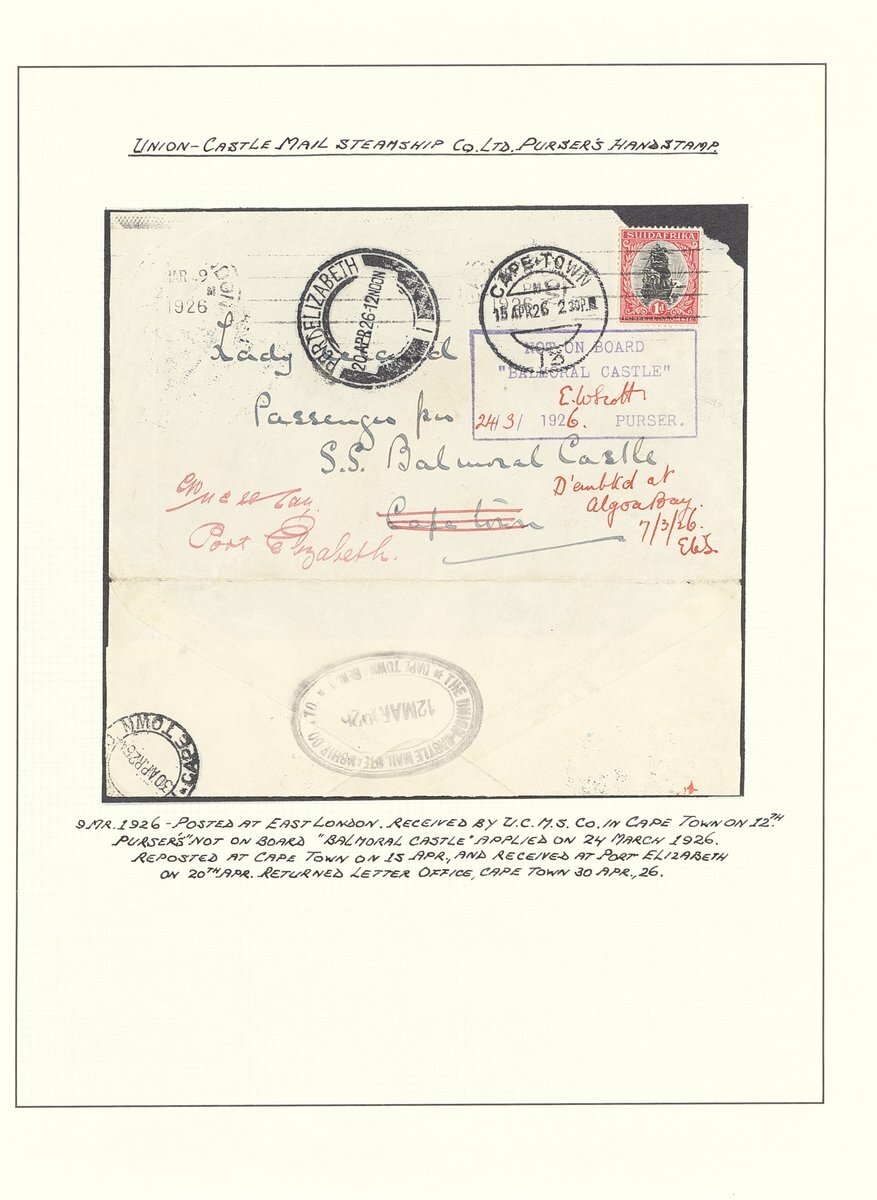 UNION-CASTLE MAIL STEAMSHIP CO. LTD. PURSER'S HANDSTAMP.
SUIDAFRIKA
1D
MR 9
1926
PORT ELIZABETH
20 APR 26 · 12 NOON
1
CAPE · TOWN
15 APR 26 2 30 PM
13
NOT ON BOARD
"BALMORAL CASTLE"
E.W.Scott
24/3/ 1926. PURSER.
Lady
Passenger per
S.S. Balmoral Castle
Cape Town
D'embkd at
Algoa Bay.
7/3/26.
EWS.
c/o
Port Elizabeth.
THE UNION-CASTLE MAIL STEAMSHIP CO LTD
CAPE TOWN
12 MAR 1926
CAPE TOWN
30 APR 26
9.MR.1926 - POSTED AT EAST LONDON. RECEIVED BY U.C.M.S. CO. IN CAPE TOWN ON 12TH.
PURSER'S "NOT ON BOARD "BALMORAL CASTLE" APPLIED ON 24 MARCH 1926.
REPOSTED AT CAPE TOWN ON 15 APR., AND RECEIVED AT PORT ELIZABETH
ON 20TH APR. RETURNED LETTER OFFICE, CAPE TOWN 30 APR., 26.